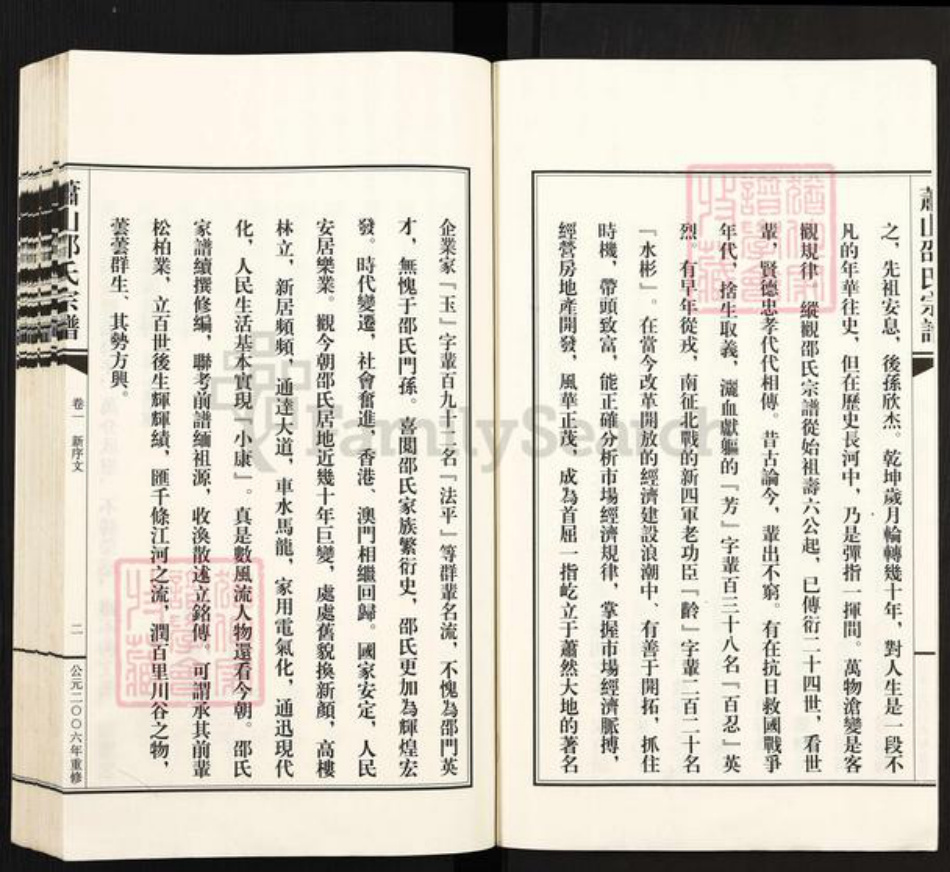 蕭山邵氏宗譜
之，先祖安息，後孫欣杰。乾坤歲月輪轉幾十年，對人生是一段不
凡的年華往史，但在歷史長河中，乃是彈指一揮間。萬物滄變是客
觀規律，縱觀邵氏宗譜從始祖壽六公起，已傳衍二十四世，看世
輩，賢德忠孝代代相傳。昔古論今，輩出不窮。有在抗日救國戰爭
年代，捨生取義，灑血獻軀的「芳」字輩百三十八名「百忍」英
烈，有早年從戎，南征北戰的新四軍老功臣「齡」字輩二百二十名
「水彬」。在當今改革開放的經濟建設浪潮中、有善于開拓，抓住
時機，帶頭致富，能正確分析市場經濟規律，掌握市場經濟脈搏，
經營房地產開發，風華正茂，成為首屈一指屹立于蕭然大地的著名
企業家「玉」字輩百九十三名「法平」等群輩名流，不愧為邵門英
才，無愧于邵氏門孫。喜閱邵氏家族繁衍史，邵氏更加為輝煌宏
發。時代變遷，社會奮進，香港、澳門相繼回歸。國家安定，人民
安居樂業。觀今朝邵氏居地近幾十年巨變，處處舊貌換新顏，高樓
林立，新居頻頻，通達大道，車水馬龍，家用電氣化，通迅現代
化，人民生活基本實現「小康」。真是數風流人物還看今朝。邵氏
家譜續撰修編，聯考前譜緬祖源，收渙散述立銘傳。可謂承其前輩
松柏業，立百世後生輝輝績，匯千條江河之流，潤百里川谷之物，
蕓蕓群生、其勢方興。
蕭山邵氏宗譜
卷一 新序文
二
公元二〇〇六年重修
FamilySearch